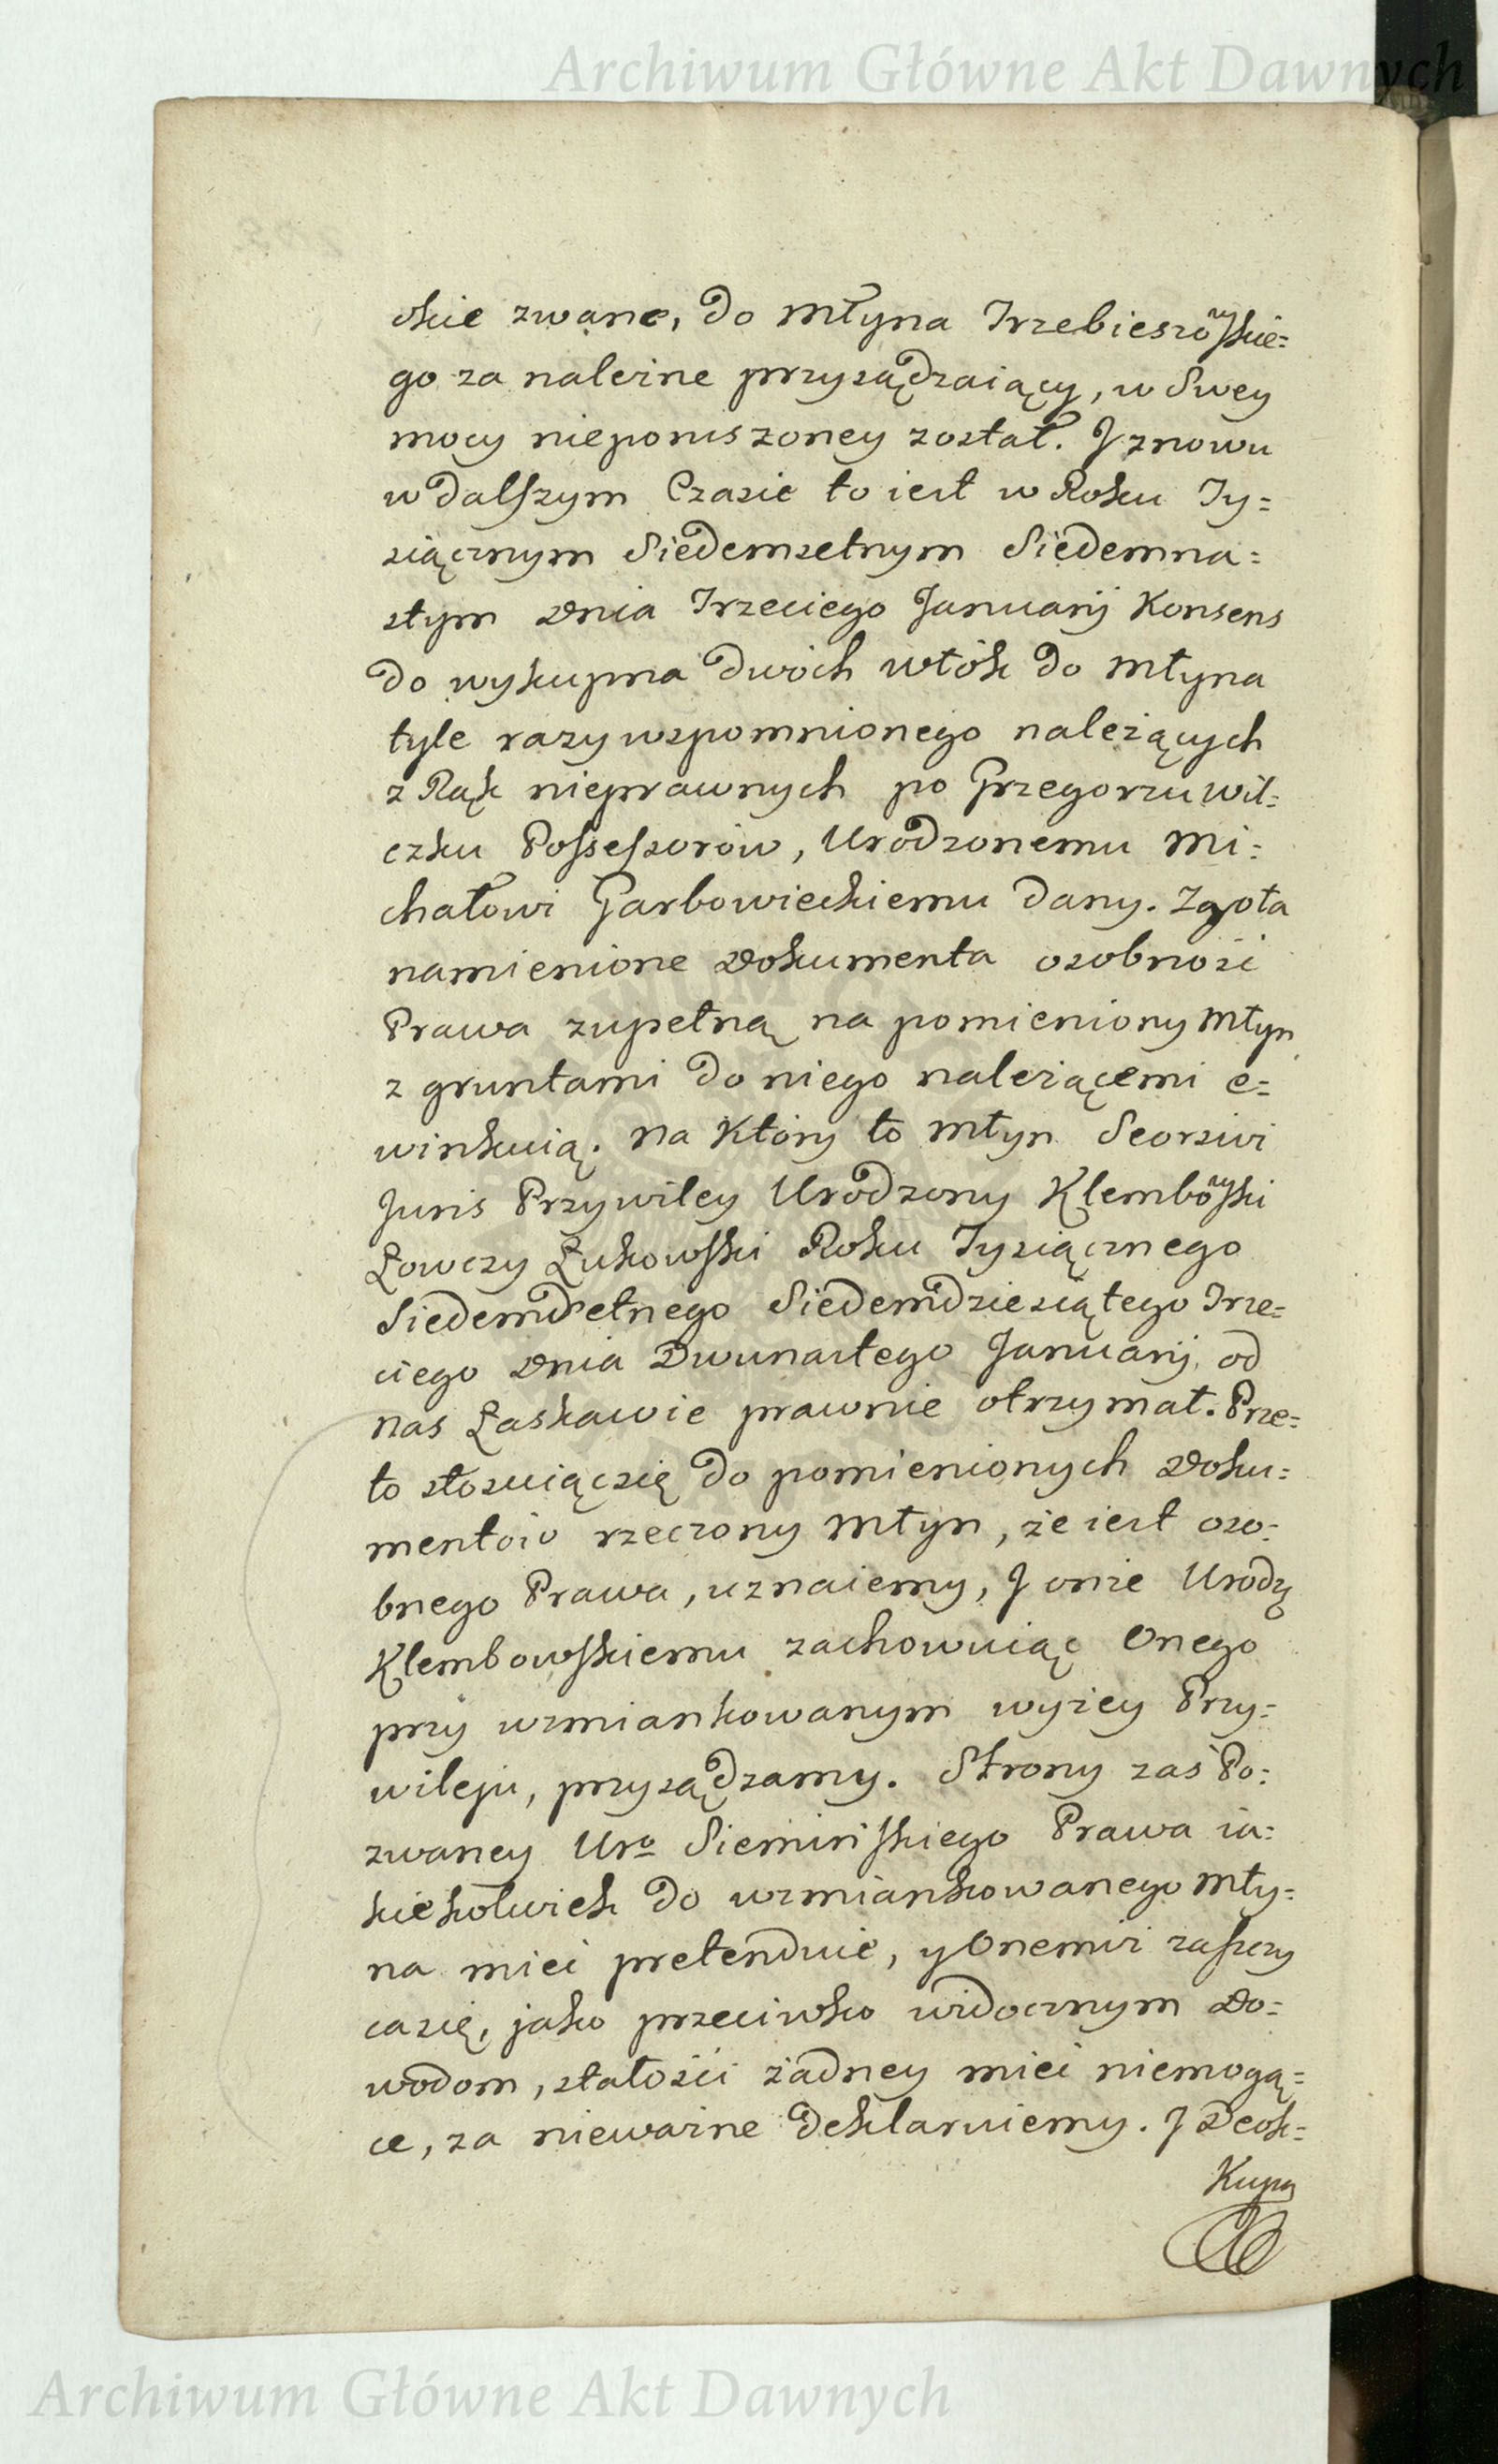 Archiwum Główne Akt Dawnych
ckie zwane, do Młyna Trzebieszowskie=
go za należne przysądzaiący, w Swey
mocy nieporuszoney został. J znowu
w dalszym Czasie to iest w Roku Ty=
siącznym Siedemsetnym Siedemna=
stym Dnia Trzeciego Januarij Konsens
do wykupna dwóch włók do Młyna
tyle razy wspomnionego należących
z Rąk nieprawnych po Grzegorzu Wil=
czku Possessorów, Urodzonemu Mi=
chałowi Garbowieckiemu dany. Zgoła
namienione Dokumenta osobność
Prawa zupełną na pomieniony Młyn
z gruntami do niego należącemi e=
winkuią. Na Który to Młyn Seorsivi
Juris Przywiley Urodzony Klembowski
Łowczy Łukowski Roku Tysiącznego
Siedemsetnego Siedemdziesiątego Trze=
ciego Dnia Dwunastego Januarij od
nas Łaskawie prawnie otrzymał. Prze=
to stosuiąc się do pomienionych Doku=
mentów rzeczony Młyn, że iest oso=
bnego Prawa, uznaiemy, J onże Urodz
Klembowskiemu zachowuiąc Onego
przy wzmiankowanym wyżey Przy=
wileju, przysądzamy. Strony zaś Po=
zwaney Uro Siemińskiego Prawa ia=
kiekolwiek do wzmiankowanego Mły=
na mieć pretenduie, y Onemiż zaszczy
ca się, jako przeciwko widocznym Do=
wodom, stałości żadney mieć niemogą=
ce, za nieważne deklaruiemy. J Deok=
Kupą
Archiwum Główne Akt Dawnych